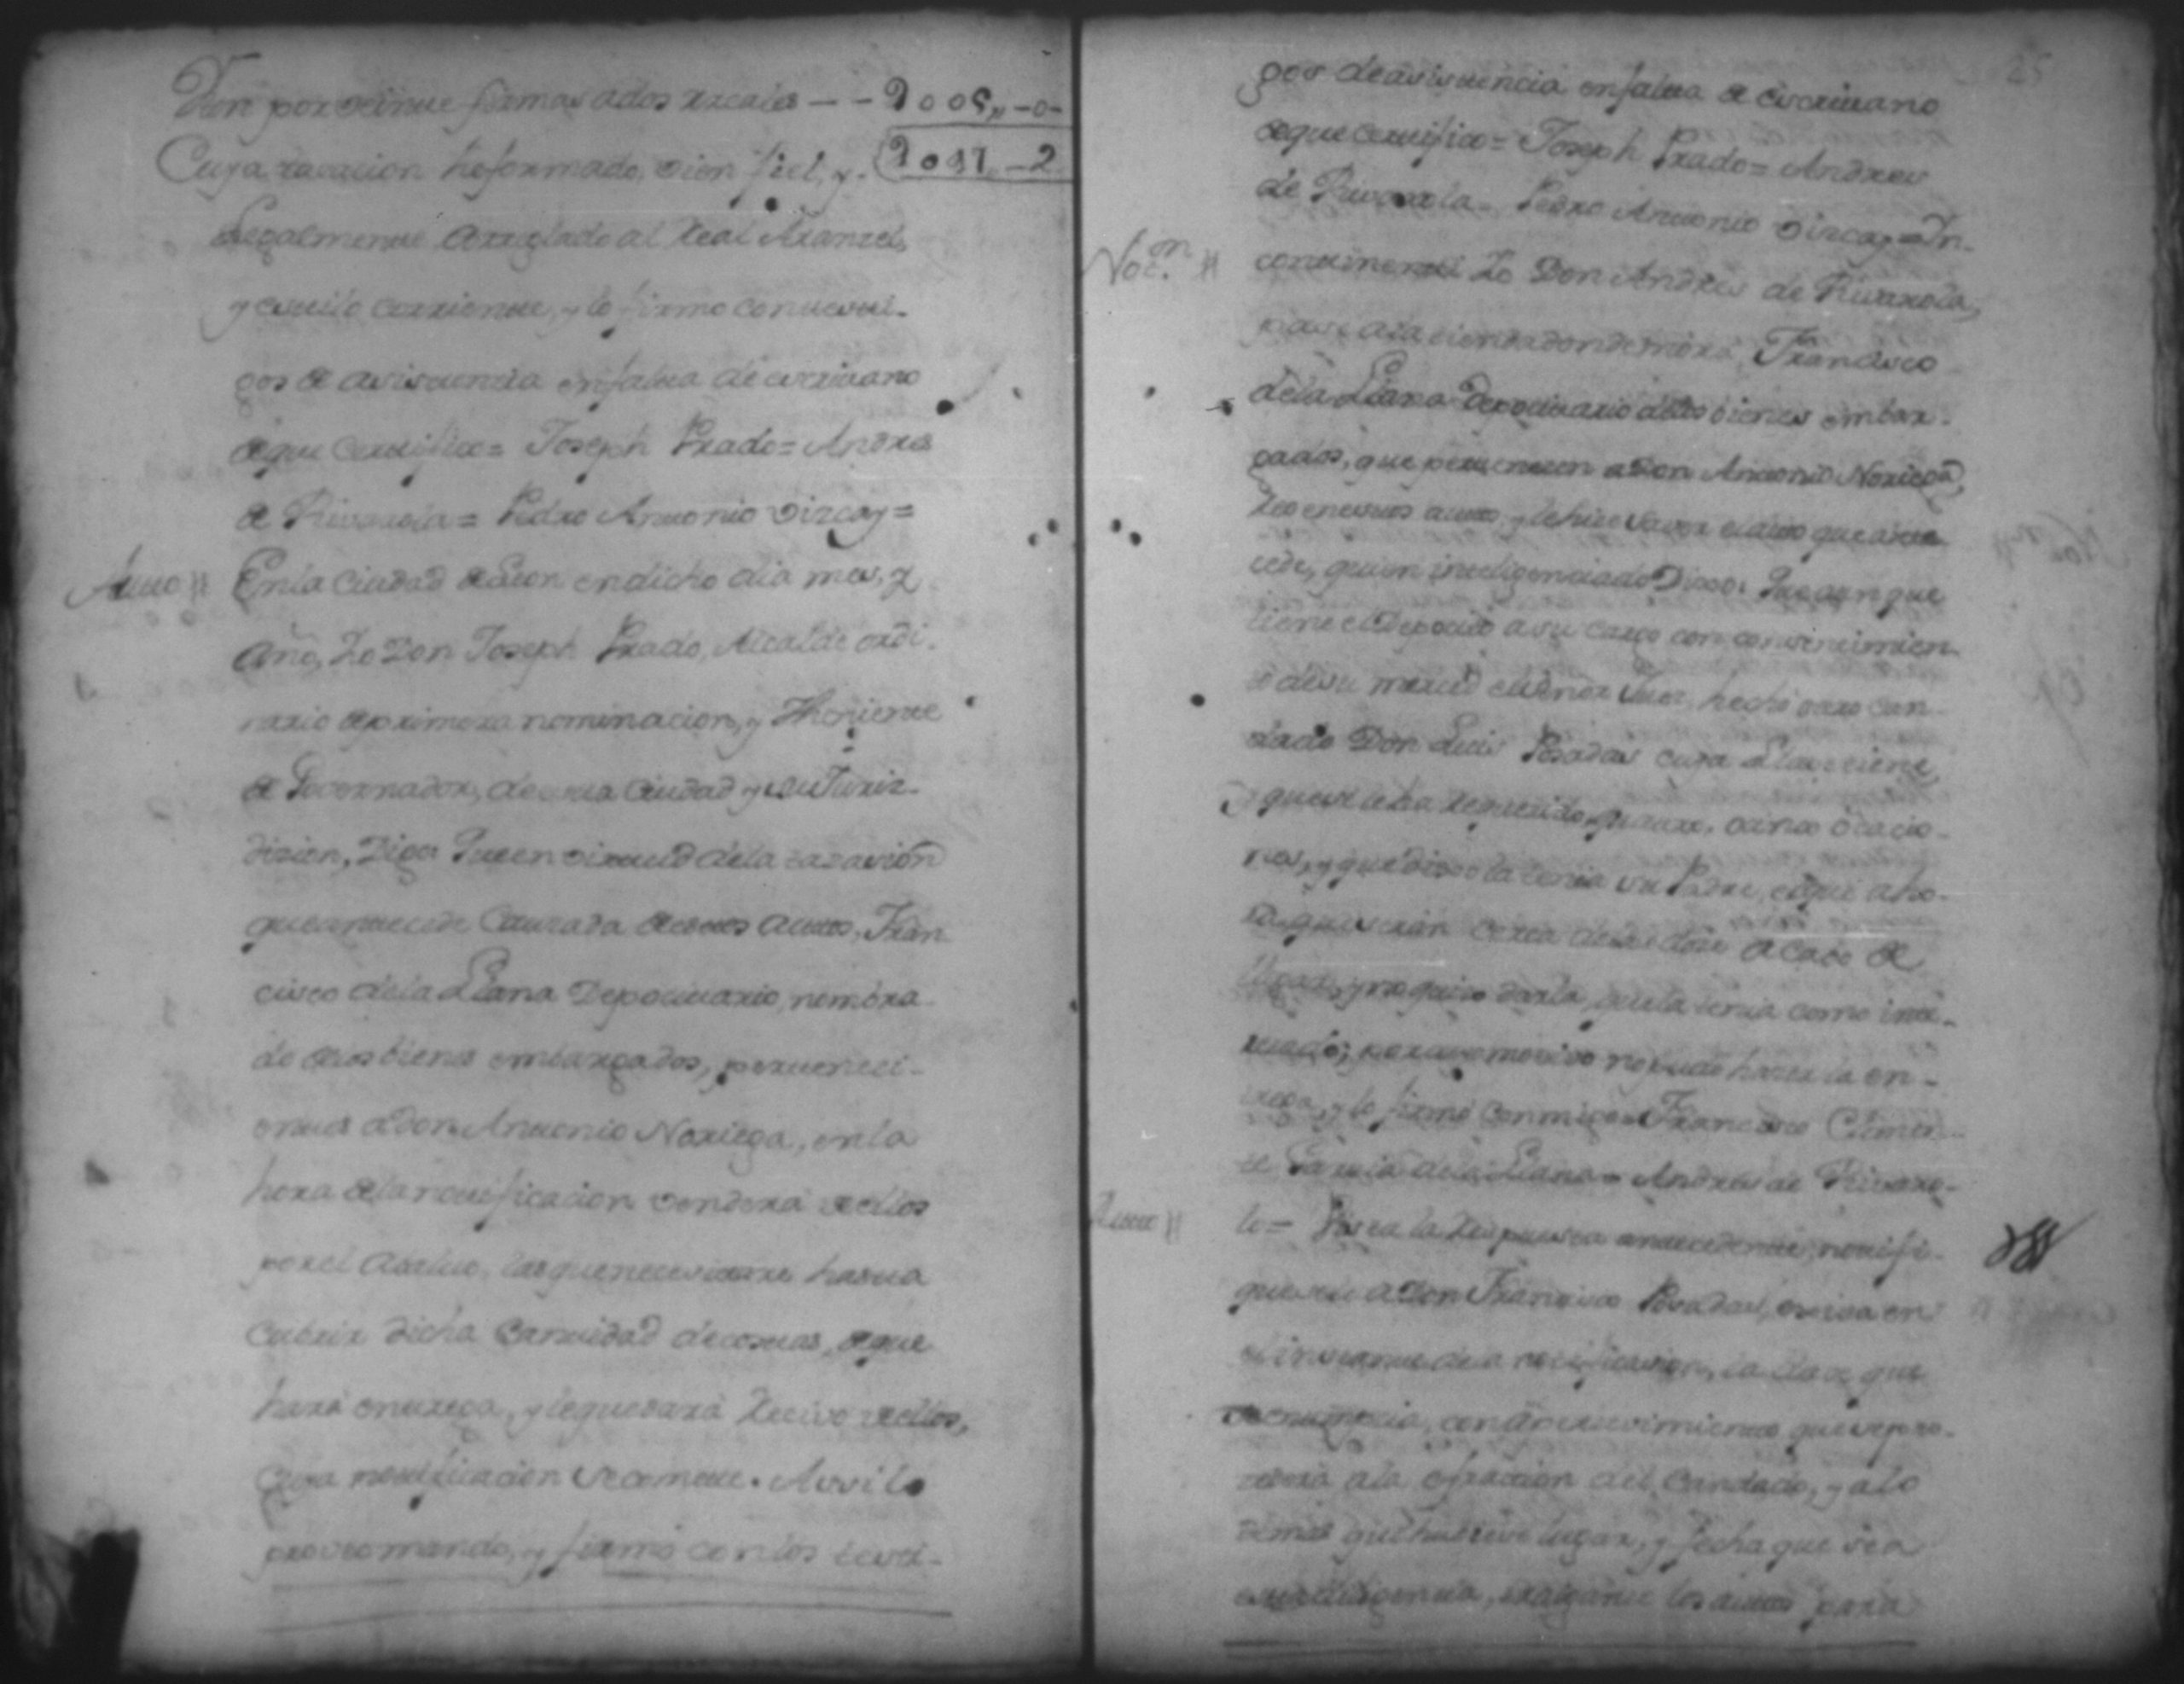 Yten por veinte firmas ados reales -- 2005,, -0-
Cuya tasacion he formado, vien fiel, y 2091 -2
Legalmente arreglado al Real Aranzel,
y estilo corriente, y lo firmo con testi-
gos de asistencia en falta de escrivano
de que Certifico = Joseph Prado = Andres
de Rivarola = Pedro Antonio Vizcay =
Auto // En la Ciudad de Leon en dicho dia mes, y
Año, Yo Don Joseph Prado, Alcalde ordi-
nario de primera nominacion, y Theniente
de Governador, de esta Ciudad y su Juriz-
dizion, Digo Que en virtud dela tazasion
que antecede Causada de estos autos, Fran
cisco dela Llana Depocitario, nombra
do delos bienes embargados, perteneci-
entes a don Antonio Noriega, en la
hora dela notificacion vendera de ellos
por el
Cubrir dicha Cantidad de costas, de que
hara entrega, y le quedara Recivo de ellos,
Cuya notificacion se comete. Assi lo
proveo mando, y firmo con los testi-
25
gos de asistencia en falta de escrivano
de que Certifico = Joseph Prado = Andres
de Rivarola = Pedro Antonio Vizcay = In-
Not.n // continenti Yo Don Andres de Rivarola,
pase ala tienda donde mora, Francisco
dela Llana Depocitario delos bienes embar-
gados, que pertenecen a Don Antonio Noriega,
Reo en estos autos, y le hice saver el auto que ante
cede, quien inteligenciado Dixo: Que aunque
tiene el Depocito a su cargo con consentimien
to de su merced el señor Juez, hecho otro can-
dado Don Luis Posadas cuya Llave tiene,
y que se le ha requerido quatro, o cinco ocacio-
nes, y que dixo la tenia su Padre, el que aho-
ra que seran cerca de las doze acabo de
llegar, y no quiso darla, que la tenia como inte-
resado; por cuyo motivo no pudo hacer la en-
trega, y lo firmo conmigo = Francisco Clemen-
te Garcia dela Llana = Andres de Rivaro-
Auto // lo = Vista la Respuesta antecedente, notifi-
quesele a Don Francisco Posadas, exsiva en
el instante dela notificasion, la llave que
se enuncia, con apercevimiento que se pro-
cedera ala efraccion del Candado, y alo
demas que huviere lugar, y fecha que sea
esta diligencia, traiganse los autos para